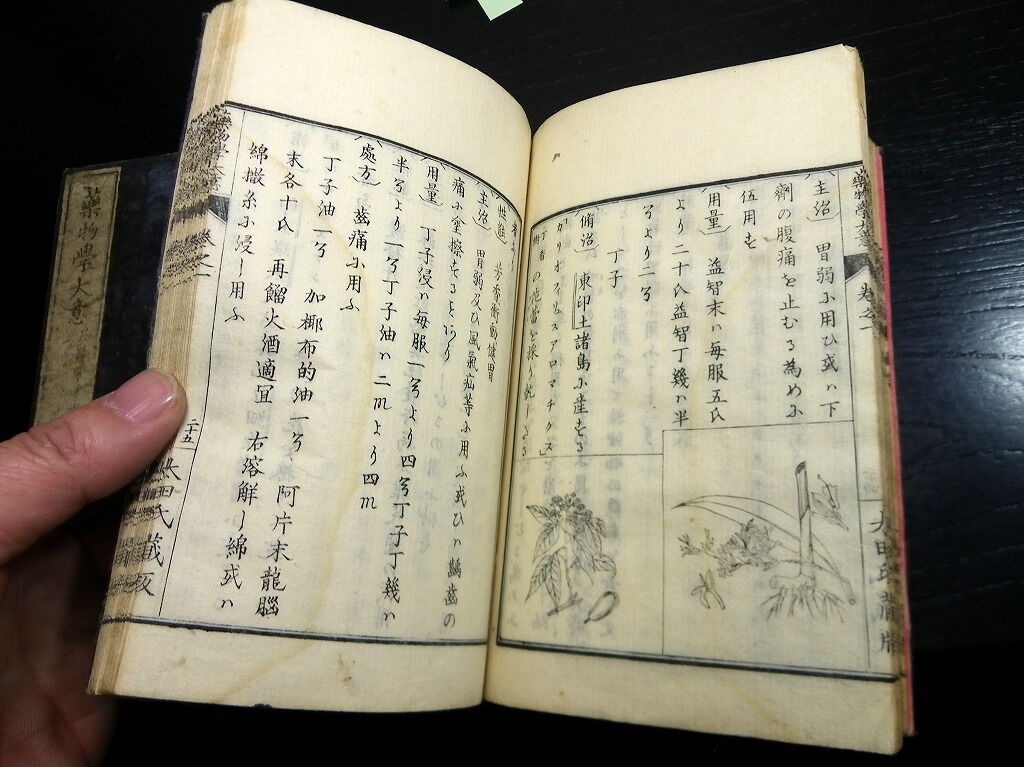 主治 胃弱ニ用ヒ或ハ下
劑の腹痛を止むる為めニ
伍用も
用量 益智末ハ毎服五氏
より二十氏益智丁幾ハ半
ゟより二ゟ
丁子
脩治 東印土諸島ニ産もる
カリオフリスアロマチクス
性効 芳香衝動健胃
主治 胃弱及ヒ風氣疝等ニ用ふ或ヒハ齲齒の
痛ニ塗擦もることあり
用量 丁子浸ハ毎服一ゟより四ゟ丁子丁幾ハ
半ゟより一ゟ丁子油ハ二mより四m
處方 齒痛ニ用ふ
丁子油一ゟ 加椰布的油一ゟ 阿片末龍腦
末各十氏 再餾火酒適宜 右溶解し綿或ハ
綿撒糸ニ浸し用ふ
藥物學大意 卷之一
二十五
藏板
藥物學大意